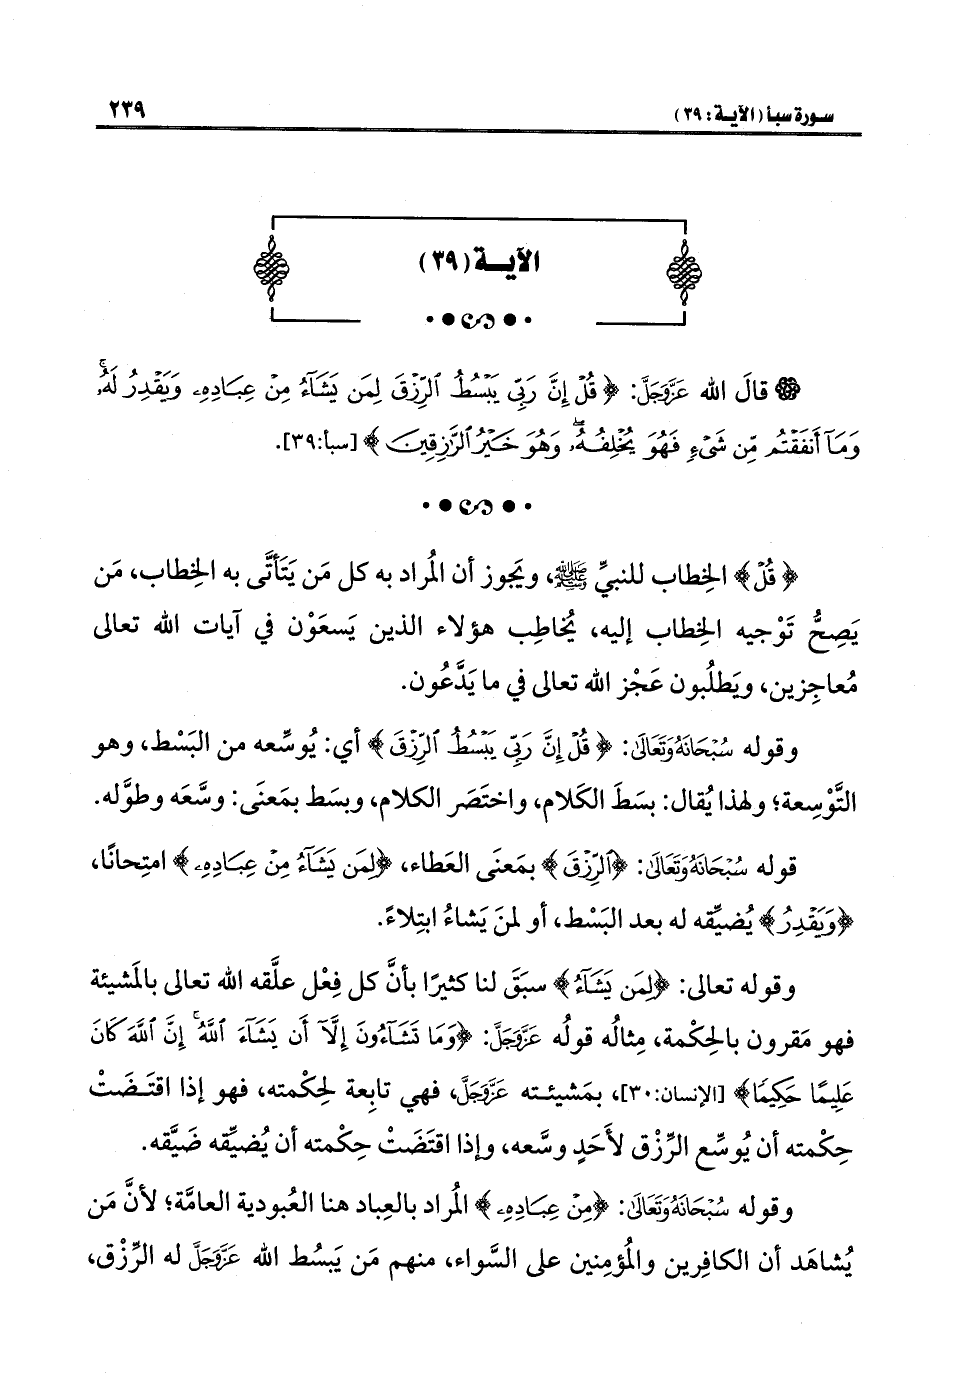 سورة سبأ (الآية: ٣٩)
٢٣٩
الآية (٣٩)
قالَ الله عَزَّوَجَلَّ: ﴿ قُلْ إِنَّ رَبِّي يَبْسُطُ ٱلرِّزْقَ لِمَن يَشَآءُ مِنْ عِبَادِهِۦ وَيَقْدِرُ لَهُۥۚ
وَمَآ أَنفَقْتُم مِّن شَىْءٍ فَهُوَ يُخْلِفُهُۥۖ وَهُوَ خَيْرُ ٱلرَّٰزِقِينَ ﴾ [سبأ:٣٩].
﴿ قُلْ ﴾ الخِطاب للنبيِّ ﷺ، ويَجوز أن المُراد به كل مَن يَتَأتَّى به الخِطاب، مَن
يَصِحُّ تَوْجيه الخِطاب إليه، يُخاطِب هؤلاء الذين يَسعَوْن في آيات الله تعالى
مُعاجِزين، ويَطلُبون عَجْز الله تعالى في ما يَدَّعُون.
وقوله سُبْحَانَهُ وَتَعَالَى: ﴿ قُلْ إِنَّ رَبِّي يَبْسُطُ ٱلرِّزْقَ ﴾ أي: يُوسِّعه من البَسْط، وهو
التَّوْسِعة؛ ولهذا يُقال: بسَطَ الكَلام، واختَصَر الكلام، وبسَط بمَعنَى: وسَّعَه وطوَّله.
قوله سُبْحَانَهُ وَتَعَالَى: ﴿ٱلرِّزْقَ ﴾ بمَعنَى العَطاء، ﴿لِمَن يَشَآءُ مِنْ عِبَادِهِۦ ﴾ امتِحانًا،
﴿وَيَقْدِرُ ﴾ يُضيِّقه له بعد البَسْط، أو لمنَ يَشاءُ ابتِلاءً.
وقوله تعالى: ﴿لِمَن يَشَآءُ ﴾ سبَقَ لنا كثيرًا بأنَّ كل فِعْل علَّقه الله تعالى بالمَشيئة
فهو مَقرون بالحِكْمة، مِثالُه قولُه عَزَّوَجَلَّ: ﴿وَمَا تَشَآءُونَ إِلَّآ أَن يَشَآءَ ٱللَّهُۚ إِنَّ ٱللَّهَ كَانَ
عَلِيمًا حَكِيمًا﴾ [الإنسان:٣٠]، بمَشيئته عَزَّوَجَلَّ، فهي تابِعة لحِكْمته، فهو إذا اقتَضَتْ
حِكْمته أن يُوسِّع الرِّزْق لأَحَدٍ وسَّعه، وإذا اقتَضَتْ حِكْمته أن يُضيِّقه ضَيَّقه.
وقوله سُبْحَانَهُ وَتَعَالَى: ﴿مِنْ عِبَادِهِۦ ﴾ المُراد بالعِباد هنا العُبودية العامَّة؛ لأنَّ مَن
يُشاهَد أن الكافِرين والمُؤمِنين على السَّواء، منهم مَن يَبسُط الله عَزَّوَجَلَّ له الرِّزْق،